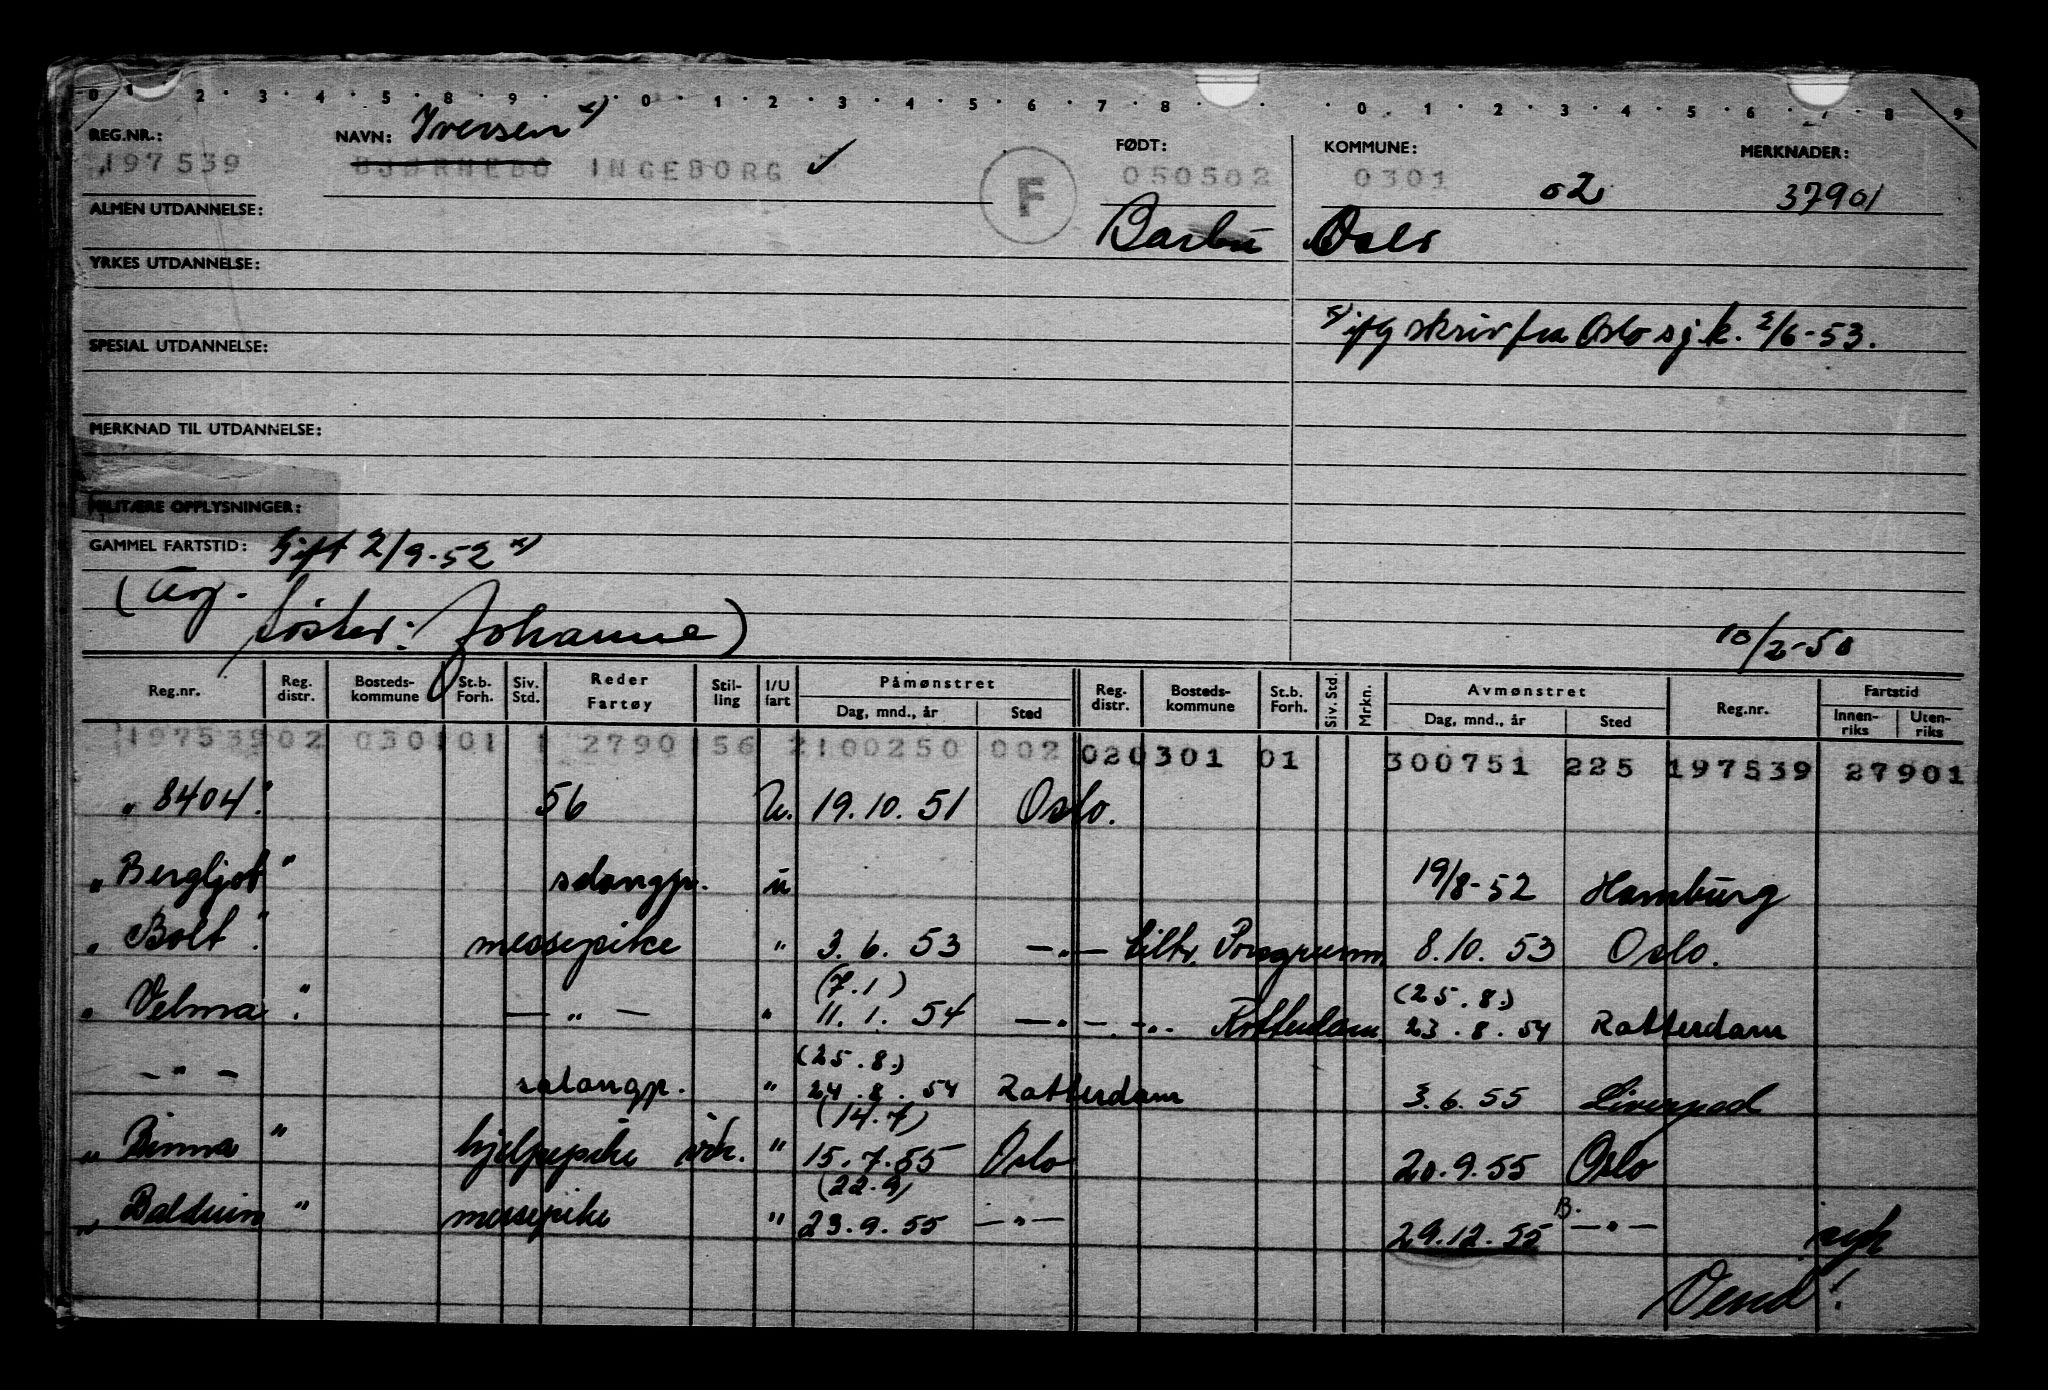 0 1 2 · 3 · 4 · 5 · 8 · 9 · 0 · 1 · 2 · 3 · 4 · 5 · 6 · 7 · 8 · 0 · 1 · 2 · 3 · 4 · 5 · 6 · 7 · 8 9
REG.NR.: NAVN: Iversen x) FØDT: KOMMUNE: MERKNADER:
197539 BJØRNEBO INGEBORG ✓ F 050502 0301 02 37901
ALMEN UTDANNELSE: Barbu Oslo
YRKES UTDANNELSE:
x) ifg skriv fra Oslo sj.k. 2/6-53.
SPESIAL UTDANNELSE:
MERKNAD TIL UTDANNELSE:
MILITÆRE OPPLYSNINGER:
GAMMEL FARTSTID: Gift 2/9-52 x)
søster: Johanne)
10/2-50
Reg.nr. Reg. distr. Bosteds-kommune St.b. Forh. Siv. Std. Reder Fartøy Stil-ling I/U fart Påmønstret Dag, mnd., år Sted Reg. distr. Bosteds-kommune St.b. Forh. Siv. Std. Mrkn. Avmønstret Dag, mnd., år Sted Reg.nr. Fartstid Innen-riks Uten-riks
197539 02 0301 01 1 2790 56 2 100250 002 02 0301 01 300751 225 197539 27901
„ 8404 " 56 U. 19.10.51 Oslo.
„ Bergljot " u 19/8-52 Hamburg
„ Bolt " messepike " 3.6.53 — " — tiltr. Porsgrunn 8.10.53 Oslo.
(7.1) (25.8.)
„ Velma " — " — " 11.1.54 — " — - " - Rotterdam 23.8.54 Rotterdam
(25.8.)
— " — salongp. " 24.8.54 Rotterdam 3.6.55 Liverpool
(14.7)
„ Binna " hjelpepike " 15.7.55 Oslo 20.9.55 Oslo
(22.9)
„ Balduin " messepike " 23.9.55 — " — 29.12.55 B. — " —
syk
Vend!